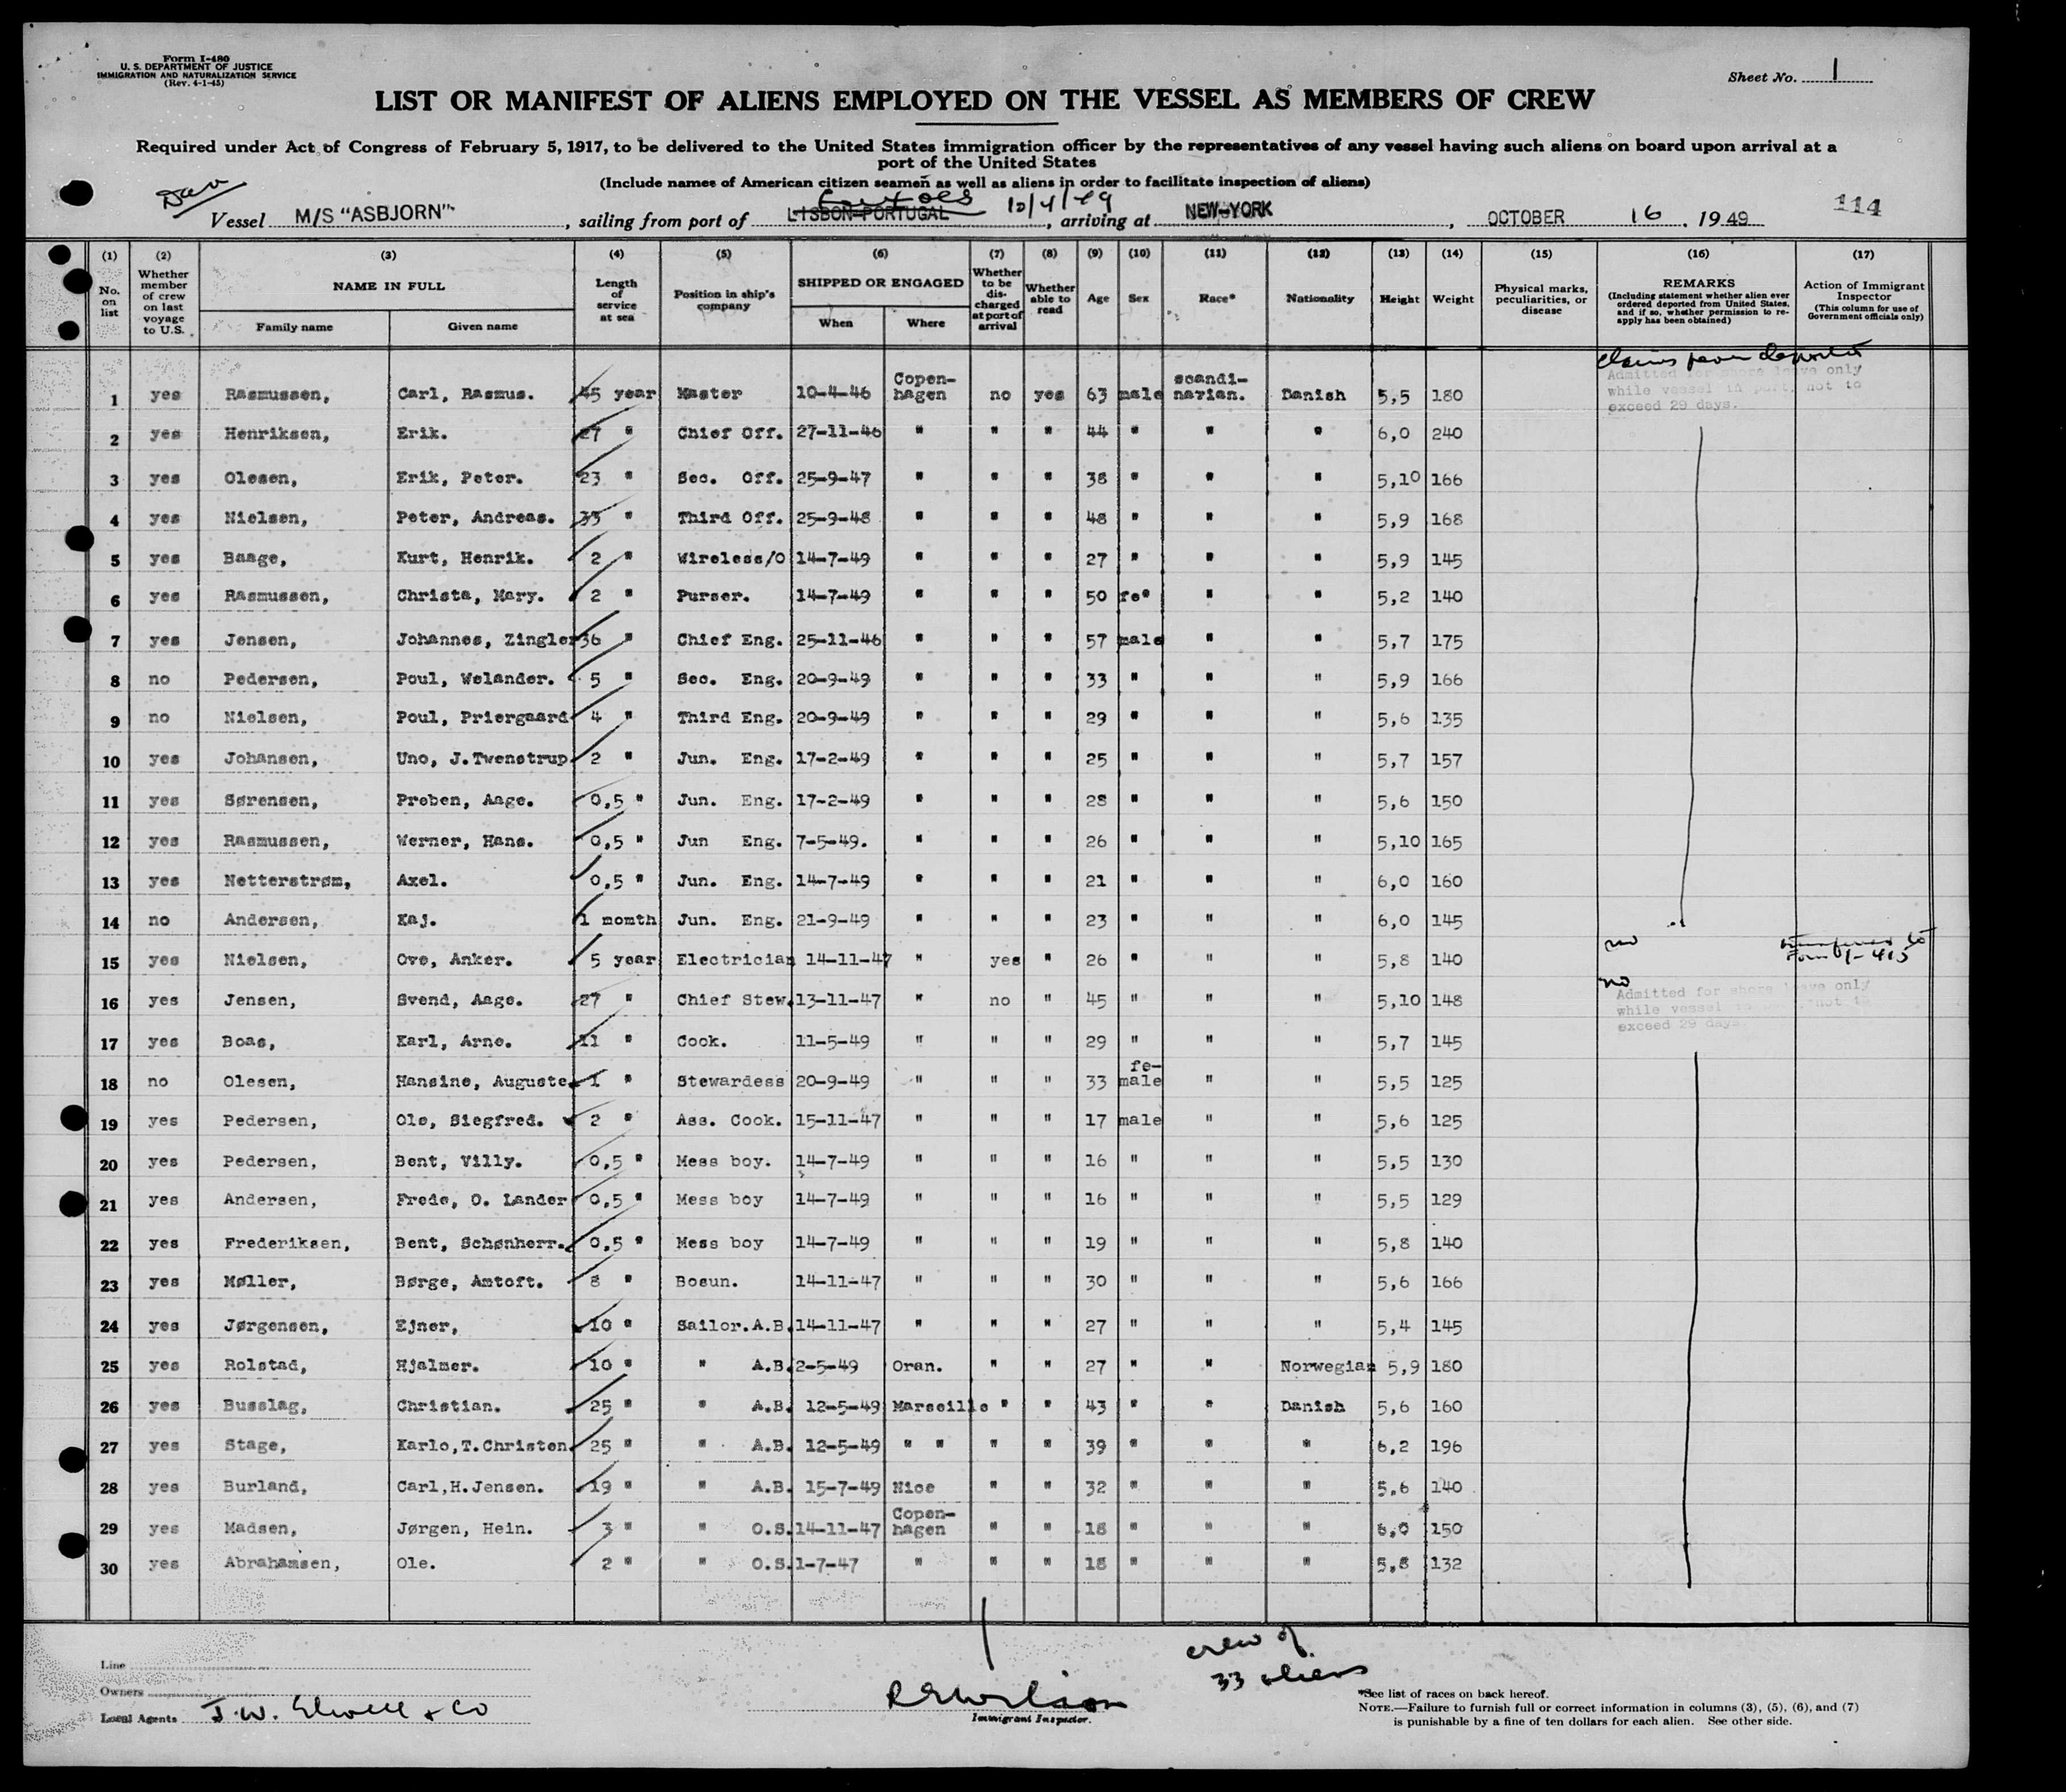 Form I-480
U. S. DEPARTMENT OF JUSTICE
IMMIGRATION AND NATURALIZATION SERVICE
(Rev. 4-1-45)
Sheet No. 1
LIST OR MANIFEST OF ALIENS EMPLOYED ON THE VESSEL AS MEMBERS OF CREW
Required under Act of Congress of February 5, 1917, to be delivered to the United States immigration officer by the representatives of any vessel having such aliens on board upon arrival at a
port of the United States
(Include names of American citizen seamen as well as aliens in order to facilitate inspection of aliens)
Vessel M/S "ASBJORN", sailing from port of LISBON-PORTUGAL 10/4/49, arriving at NEW-YORK, OCTOBER 16, 1949
114
(1) (2) (3) (4) (5) (6) (7) (8) (9) (10) (11) (12) (13) (14) (15) (16) (17)
No. on list
Whether member of crew on last voyage to U.S.
NAME IN FULL
Family name Given name
Length of service at sea
Position in ship's company
SHIPPED OR ENGAGED
When Where
Whether to be discharged at port of arrival
Whether able to read
Age
Sex
Race*
Nationality
Height
Weight
Physical marks, peculiarities, or disease
REMARKS
(Including statement whether alien ever ordered deported from United States, and if so, whether permission to reapply has been obtained)
Action of Immigrant Inspector
(This column for use of Government officials only)
claims never deported
Admitted for shore leave only
while vessel in port, not to
exceed 29 days.
1 yes Rasmussen, Carl, Rasmus. 45 year Master 10-4-46 Copen-hagen no yes 63 male scandi-navian. Danish 5,5 180
2 yes Henriksen, Erik. 27 " Chief Off. 27-11-46 " " " 44 " " " 6,0 240
3 yes Olesen, Erik, Peter. 23 " Sec. Off. 25-9-47 " " " 38 " " " 5,10 166
4 yes Nielsen, Peter, Andreas. 33 " Third Off. 25-9-48 " " " 48 " " " 5,9 168
5 yes Baage, Kurt, Henrik. 2 " Wireless/O 14-7-49 " " " 27 " " " 5,9 145
6 yes Rasmussen, Christa, Mary. 2 " Purser. 14-7-49 " " " 50 fe" " " 5,2 140
7 yes Jensen, Johannes, Zingler 36 " Chief Eng. 25-11-46 " " " 57 male " " 5,7 175
8 no Pedersen, Poul, Welander. 5 " Sec. Eng. 20-9-49 " " " 33 " " " 5,9 166
9 no Nielsen, Poul, Priergaard 4 " Third Eng. 20-9-49 " " " 29 " " " 5,6 135
10 yes Johansen, Uno, J.Twenstrup 2 " Jun. Eng. 17-2-49 " " " 25 " " " 5,7 157
11 yes Sørensen, Preben, Aage. 0,5 " Jun. Eng. 17-2-49 " " " 28 " " " 5,6 150
12 yes Rasmussen, Werner, Hans. 0,5 " Jun Eng. 7-5-49. " " " 26 " " " 5,10 165
13 yes Netterstrøm, Axel. 0,5 " Jun. Eng. 14-7-49 " " " 21 " " " 6,0 160
14 no Andersen, Kaj. 1 momth Jun. Eng. 21-9-49 " " " 23 " " " 6,0 145
15 yes Nielsen, Ove, Anker. 5 year Electrician 14-11-47 " yes " 26 " " " 5,8 140 no Form I-415
16 yes Jensen, Svend, Aage. 27 " Chief Stew. 13-11-47 " no " 45 " " " 5,10 148 no
Admitted for shore leave only
while vessel in port, not to
exceed 29 days.
17 yes Boas, Karl, Arne. 11 " Cook. 11-5-49 " " " 29 " " " 5,7 145
18 no Olesen, Hansine, Auguste. 1 " Stewardess 20-9-49 " " " 33 fe-male " " 5,5 125
19 yes Pedersen, Ole, Siegfred. 2 " Ass. Cook. 15-11-47 " " " 17 male " " 5,6 125
20 yes Pedersen, Bent, Villy. 0,5 " Mess boy. 14-7-49 " " " 16 " " " 5,5 130
21 yes Andersen, Frede, O. Lander 0,5 " Mess boy 14-7-49 " " " 16 " " " 5,5 129
22 yes Frederiksen, Bent, Schønherr. 0,5 " Mess boy 14-7-49 " " " 19 " " " 5,8 140
23 yes Møller, Børge, Amtoft. 8 " Bosun. 14-11-47 " " " 30 " " " 5,6 166
24 yes Jørgensen, Ejner, 10 " Sailor.A.B. 14-11-47 " " " 27 " " " 5,4 145
25 yes Rolstad, Hjalmer. 10 " " A.B. 2-5-49 Oran. " " 27 " " Norwegian 5,9 180
26 yes Busslag, Christian. 25 " " A.B. 12-5-49 Marseille " " 43 " " Danish 5,6 160
27 yes Stage, Karlo,T.Christen. 25 " " A.B. 12-5-49 " " " " 39 " " " 6,2 196
28 yes Burland, Carl,H.Jensen. 19 " " A.B. 15-7-49 Nice " " 32 " " " 5,6 140
29 yes Madsen, Jørgen, Hein. 3 " " O.S. 14-11-47 Copen-hagen " " 18 " " " 6,0 150
30 yes Abrahamsen, Ole. 2 " " O.S. 1-7-47 " " " 18 " " " 5,8 132
Line
Owners
Local Agents J. W. Elwell & Co
R E Wilson
Immigrant Inspector.
crew of
33 aliens
*See list of races on back hereof.
NOTE.—Failure to furnish full or correct information in columns (3), (5), (6), and (7)
is punishable by a fine of ten dollars for each alien. See other side.